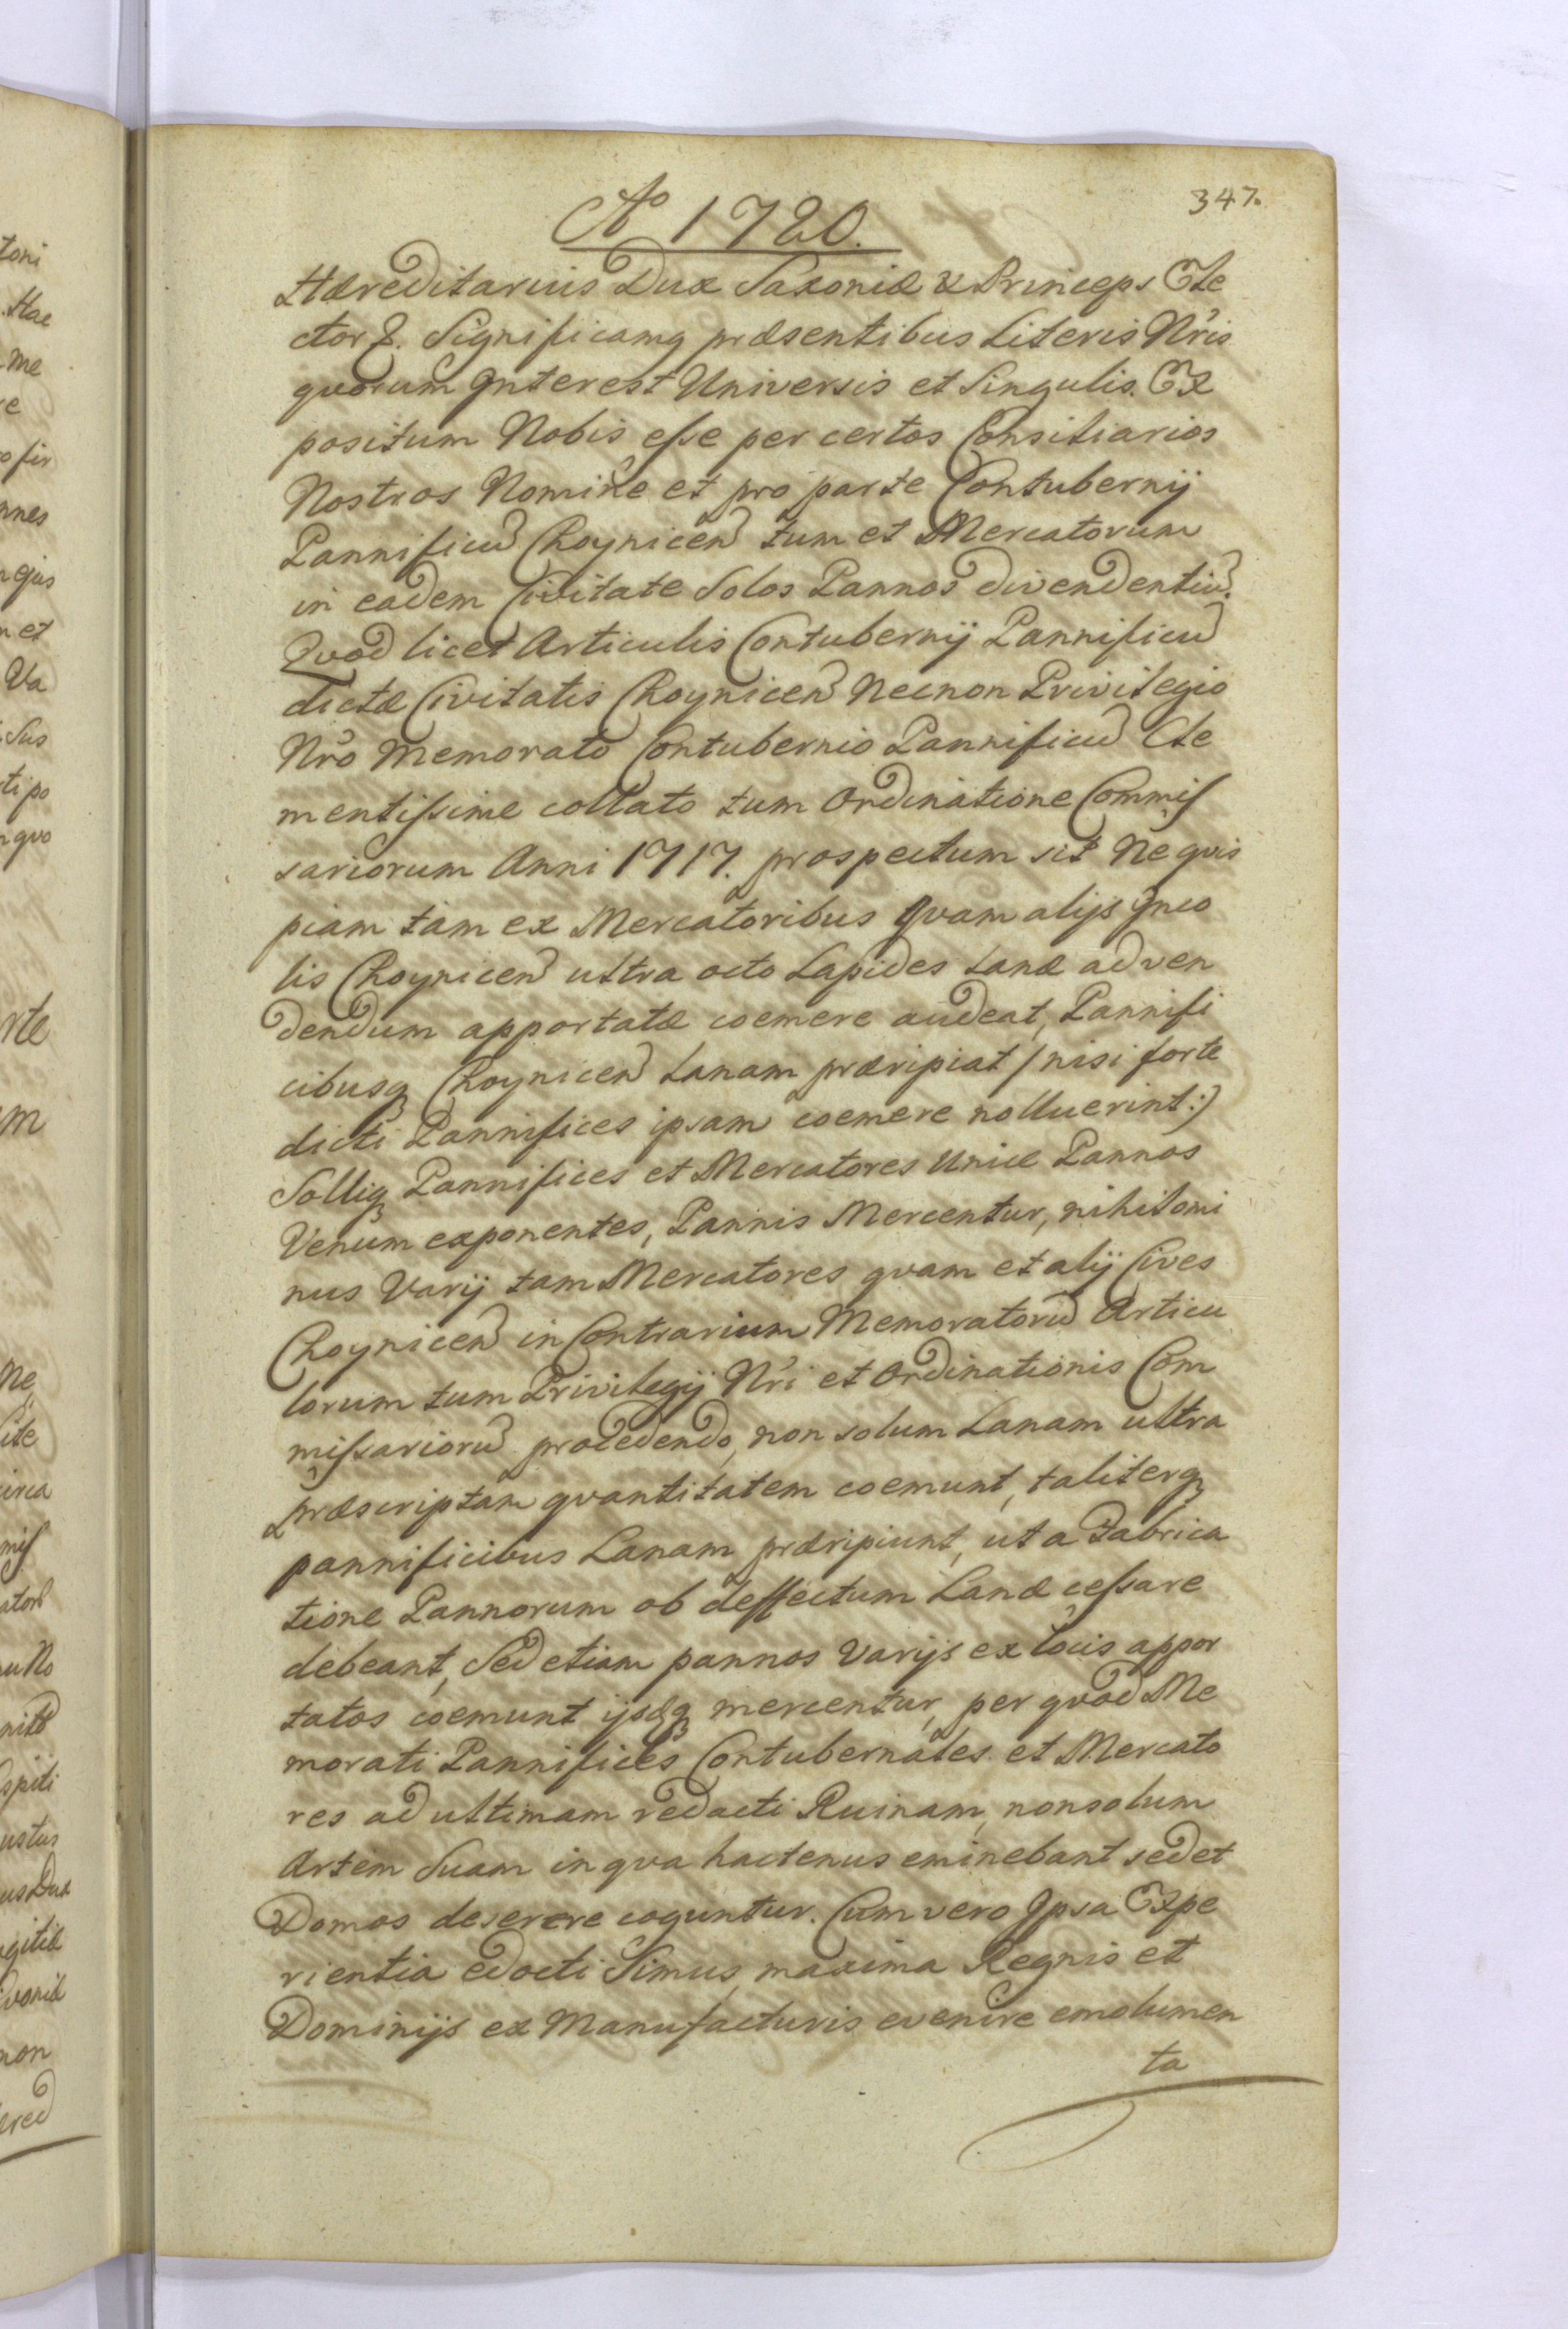 347.
Ao 1720.
Hæreditarius Dux Saxoniæ & Princeps Ele
ctor &. Significamq præsentibus Literis Nr̃is
quorum Interest Universis et Singulis. Ex
positum Nobis esse per certos Consiliarios
Nostros Nomine et pro parte Contubernij
Pannificũ Choynicen̄ tum et Mercatorum
in eadem Civitate Solos Pannos divendentiũ.
Quod licet Articulis Contubernij Pannificũ
dictæ Civitatis Choynicen̄ Necnon Privilegio
Nr̃o Memorato Contubernio Pannificũ Cle
mentissime collato tum Ordinatione Commis
sariorum Anni 1717. prospectum sit Ne quis
piam tam ex Mercatoribus Quam alijs Inco
lis Choynicen̄ ultra octo Lapides Lanæ ad ven
dendum apportatæ coemere audeat, Pannifi
cibusq Choynicen̄ Lanam præripiat /nisi forte
dicti Pannifices ipsam coemere nolluerint:)
Solliq Pannifices et Mercatores Unice Pannos
Venum exponentes, Pannis Mercentur, nihilomi
nus Varij tam Mercatores quam et alij Cives
Choynicen̄ in Contrarium Memoratorũ Articu
lorum tum Privilegij Nr̃i et Ordinationis Com
missariorũ procedendo, non solum Lanam ultra
præscriptam quantitatem coemunt, taliterq
pannificibus Lanam præripiunt, ut a Fabrica
tione Pannorum ob deffectum Lanæ cessare
debeant, Sed etiam pannos Varijs ex locis appor
tatos coemunt ijsdq mercentur, per quod Me
morati Pannifices Contubernales et Mercato
res ad ultimam redacti Ruinam, non solum
Artem Suam in qua hactenus eminebant sed et
Domos deserere coguntur. Cum vero Ipsa Expe
rientia edocti Simus, maxima Regnis et
Dominijs ex Manufacturis evenire emolumen
ta